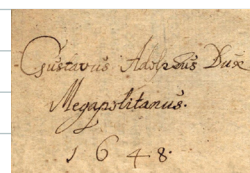 Gustavus Adolphus Dux
Megapolitanus.
1648.